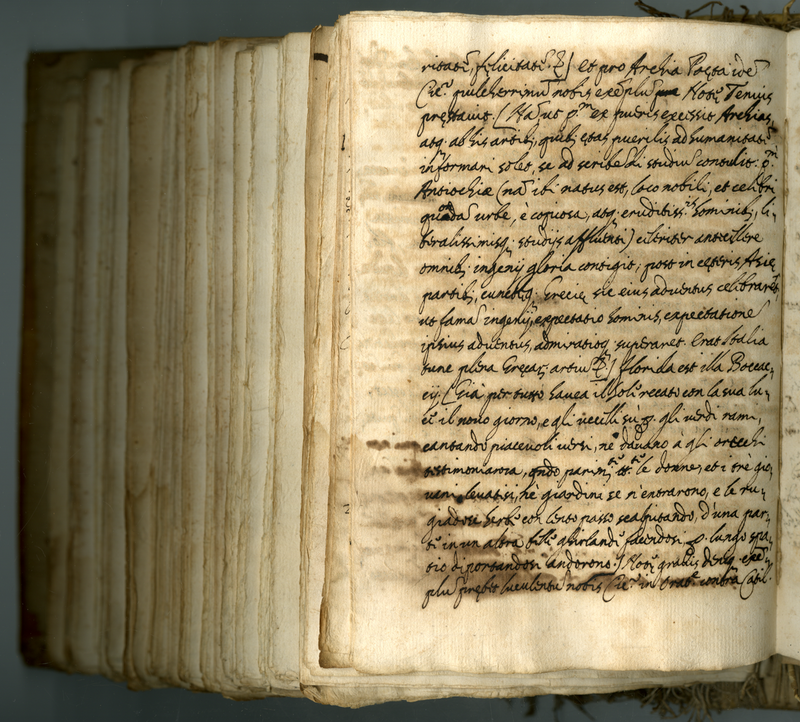 ritatē, felicitatē &] et pro Archia Poeta idē
Cic. pulcherrimū nobis exēplū Notę Tenuis
pręstavit. (Nā ut pm ex pueris excessit Archias,
atq. ab his artib, quib ętas puerilis ad humanitatē
informari solet, se ad scribēdi studiū contulit: pm
Antiochiæ (nā ibi natus est, loco nobili, et celebri
quōdā urbe, è copiosa, atq. eruditiss.is hominib, li-
beralissimisq. studijs affluenti) celeriter antecellere
omnib. ingenij gloria contigit, post in cęteris Asię
partib, cunctęq. Gręcię, sic eius adventus celebrarēt,
ut famā ingenij, expectatio hominis, expectationē
ipsius adventus, admiratioq. superaret. Erat Italia
tunc plena Gręcar. artiū &] florida est illa Boccac-
cij. (Già per tutto havea il Sole recato con la sua lu-
ce il novo giorno, e gli uccelli sù p. gli verdi rami,
cantando piacevoli versi, ne davano à gli orecchi
testimonianza, qndo parimte tte le donne, et i trè gio-
vani levatisi, né giardini se n'entrarono, e le ru-
giadose herbe con lento passo scalpitando, d'una par-
te in un altra belle ghirlande facendosi p. lungo spa-
tio diportandosi andorono.) Notę gravis deniq. exē-
plū prębet luculentū nobis Cic. in Orat. contra Catil.